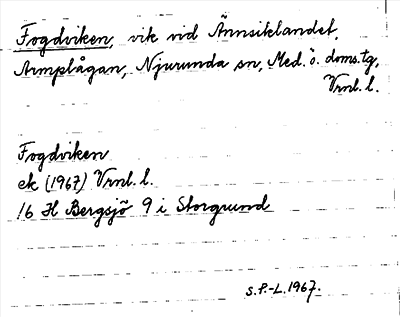 Fogdviken, vik vid Ännsiklandet,
Armplågan, Njurunda sn, Med. ö. doms.tg,
Vrnl. l.
Fogdviken
ek (1967) Vrnl. l.
16 H Bergsjö 9 i Storgrund
S.P.-L. 1967.